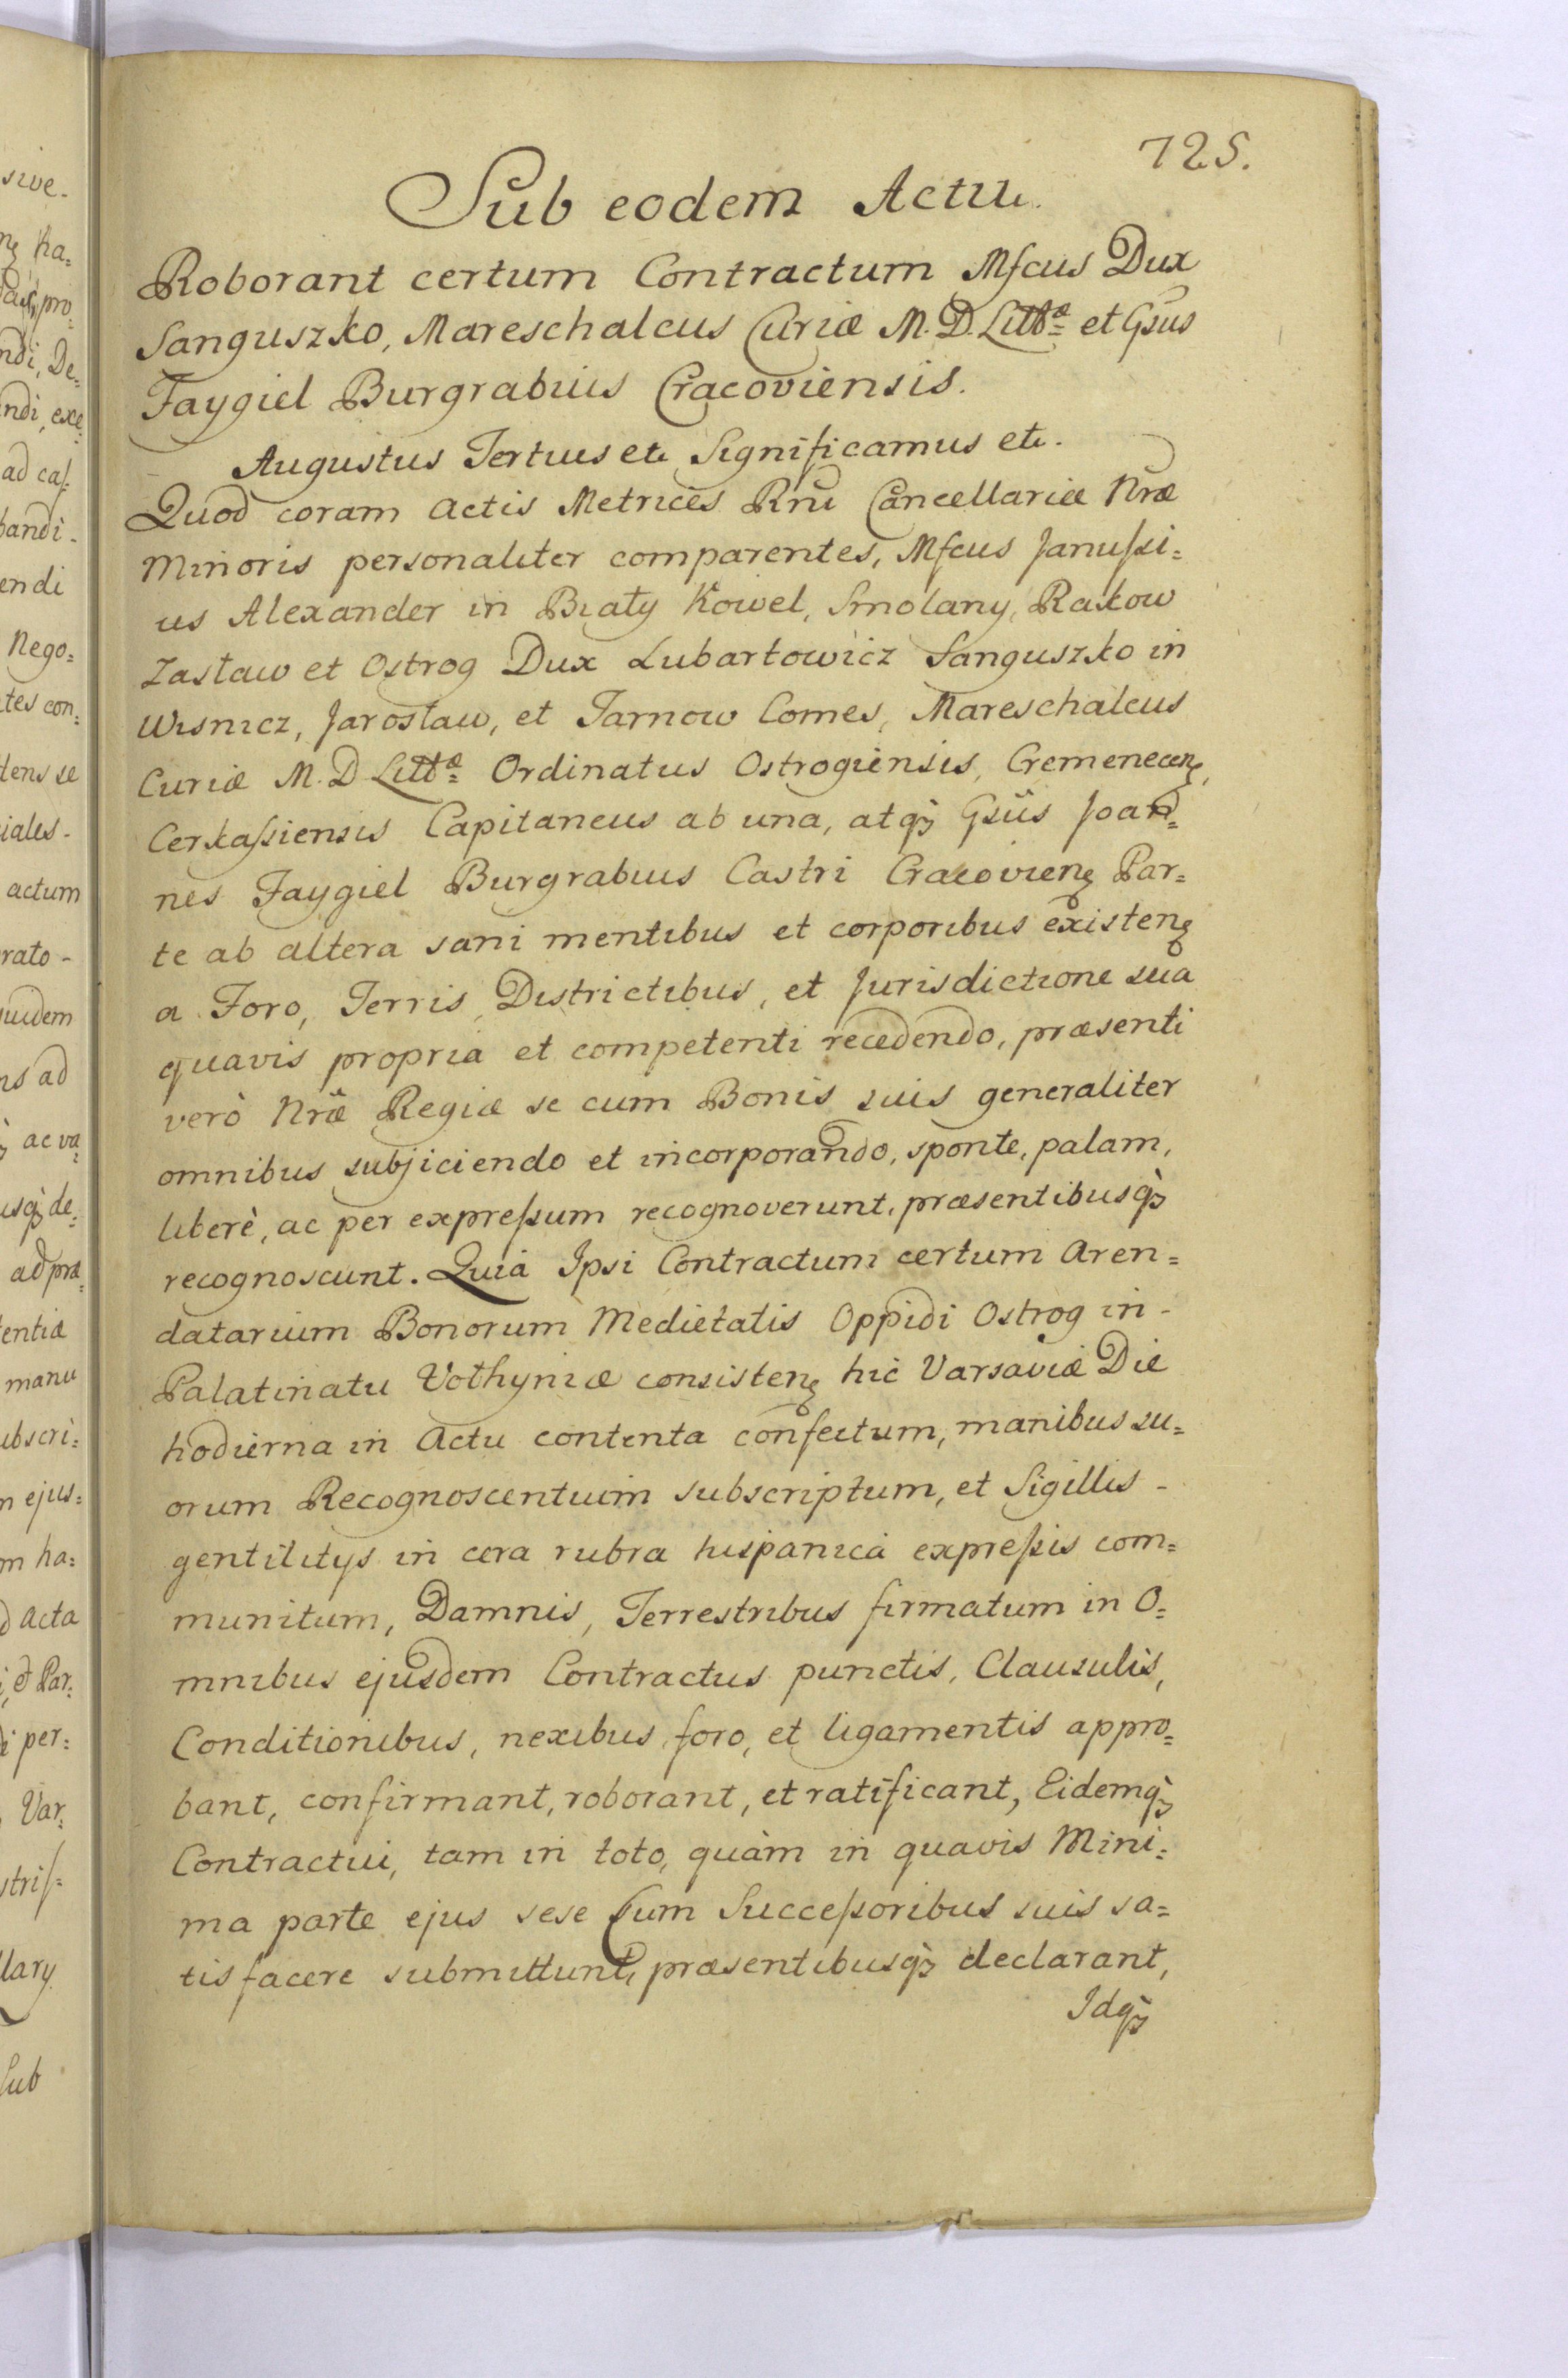 725.
Sub eodem Actu.
Roborant certum Contractum Mfcus Dux
Sanguszko, Mareschalcus Curiæ M. D. Littæ et Gsus
Faygiel Burgrabius Cracoviensis.
Augustus Tertius etc Significamus etc.
Quod coram Actis Metrices Rni Cancellariæ Nræ
Minoris personaliter comparentes, Mfcus Janussi=
us Alexander in Biały Kowel, Smolany, Rakow
Zasław et Ostrog Dux Lubartowicz Sanguszko in
Wisnicz, Jarosław, et Tarnow Comes, Mareschalcus
Curiæ M. D. Littæ Ordinatus Ostrogiensis, Cremenecen,
Cerkassiensis Capitaneus ab una, atq₃ Gsus Joan=
nes Faygiel Burgrabius Castri Cracovien Par=
te ab altera sani mentibus et corporibus existen
a Foro, Terris, Districtibus, et Jurisdictione sua
quavis propria et competenti recedendo, præsenti
verò Nræ Regiæ se cum Bonis suis generaliter
omnibus subjiciendo et incorporando, sponte, palam,
liberè, ac per expressum recognoverunt, præsentibusq₃
recognoscunt. Quia Ipsi Contractum certum Aren=
datarium Bonorum Medietatis Oppidi Ostrog in -
Palatinatu Volhyniæ consisten hic Varsaviæ Die
hodierna in Actu contenta confectum, manibus su=
orum Recognoscentium subscriptum, et Sigillis -
gentilitys in cera rubra hispanica expressis com=
munitum, Damnis, Terrestribus firmatum in O=
mnibus ejusdem Contractus punctis, Clausulis,
Conditionibus, nexibus, foro, et ligamentis appro=
bant, confirmant, roborant, et ratificant, Eidemq₃
Contractui, tam in toto, quàm in quavis Mini=
ma parte ejus sese Cum Successoribus suis sa=
tisfacere submittunt, præsentibusq₃ declarant,
Idq₃